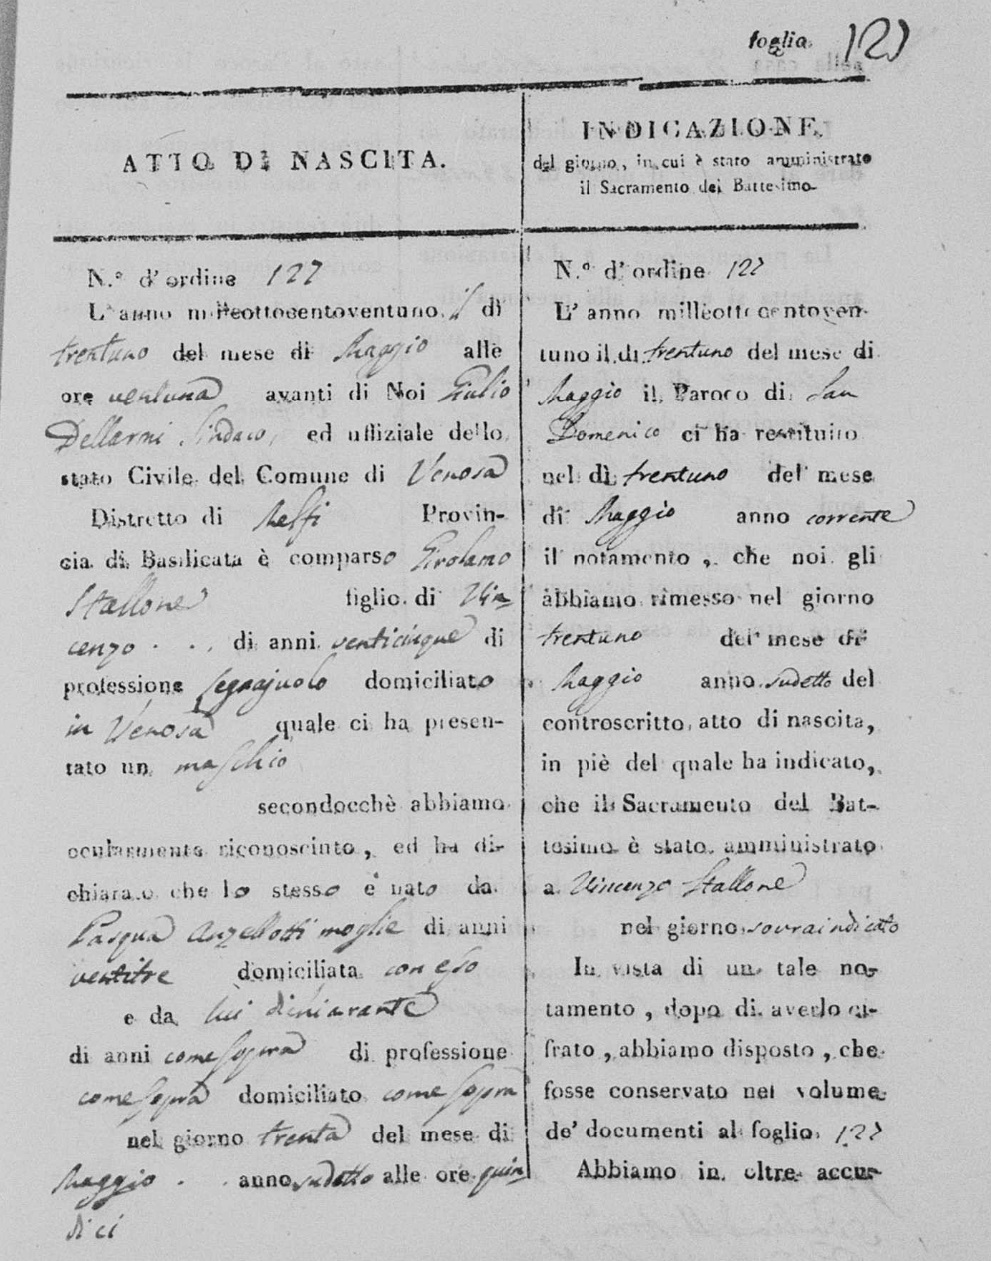 foglio 127
ATTO DI NASCITA.
N.º d'ordine 127
L'anno milleottocentoventuno il dì
trentuno del mese di Maggio alle
ore ventuna avanti di Noi Giulio
Dellarni Sindaco, ed uffiziale dello
stato Civile del Comune di Venosa
Distretto di Melfi Provin-
cia di Basilicata è comparso Girolamo
Stallone figlio di Vin
cenzo di anni venticinque di
professione Segajuolo domiciliato
in Venosa quale ci ha presen-
tato un maschio
secondocchè abbiamo
ocularmente riconosciuto, ed ha di-
chiarato che lo stesso è nato da
Pasqua Anzellotti moglie di anni
ventitre domiciliata con esso
e da lui dichiarante
di anni come sopra di professione
come sopra domiciliato come sopra
nel giorno trenta del mese di
Maggio anno sudetto alle ore quin
dici
INDICAZIONE.
del giorno, in cui è stato amministrato
il Sacramento del Battesimo
N.º d'ordine 127
L'anno milleottocentoven-
tuno il dì trentuno del mese di
Maggio il Paroco di San
Domenico ci ha restituito
nel dì trentuno del mese
di Maggio anno corrente
il notamento, che noi gli
abbiamo rimesso nel giorno
trentuno del mese di
Maggio anno sudetto del
controscritto atto di nascita,
in piè del quale ha indicato,
che il Sacramento del Bat-
tesimo è stato amministrato
a Vincenzo Stallone
nel giorno sovraindicato
In vista di un tale no-
tamento, dopo di averlo ci-
frato, abbiamo disposto, che
fosse conservato nel volume
de' documenti al foglio 127
Abbiamo in oltre accu-